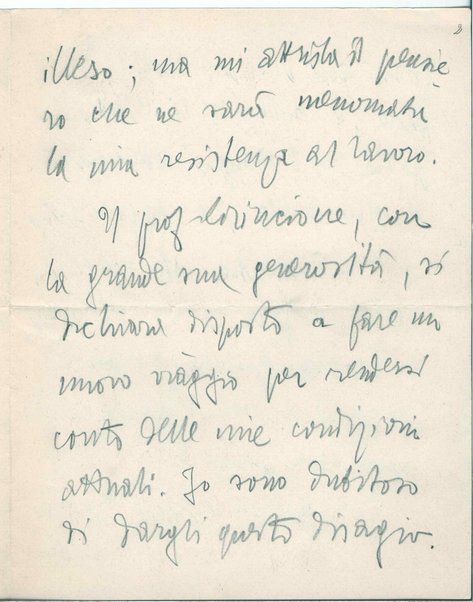 2
illeso; ma mi attrista il pensie
ro che ne sarà menomata
la mia resistenza al lavoro.
Il prof. , con
la grande sua generosità, si
dichiara disposto a fare un
nuovo viaggio per rendersi
conto delle mie condizioni
attuali. Io sono dubitoso
di dargli questo disagio.